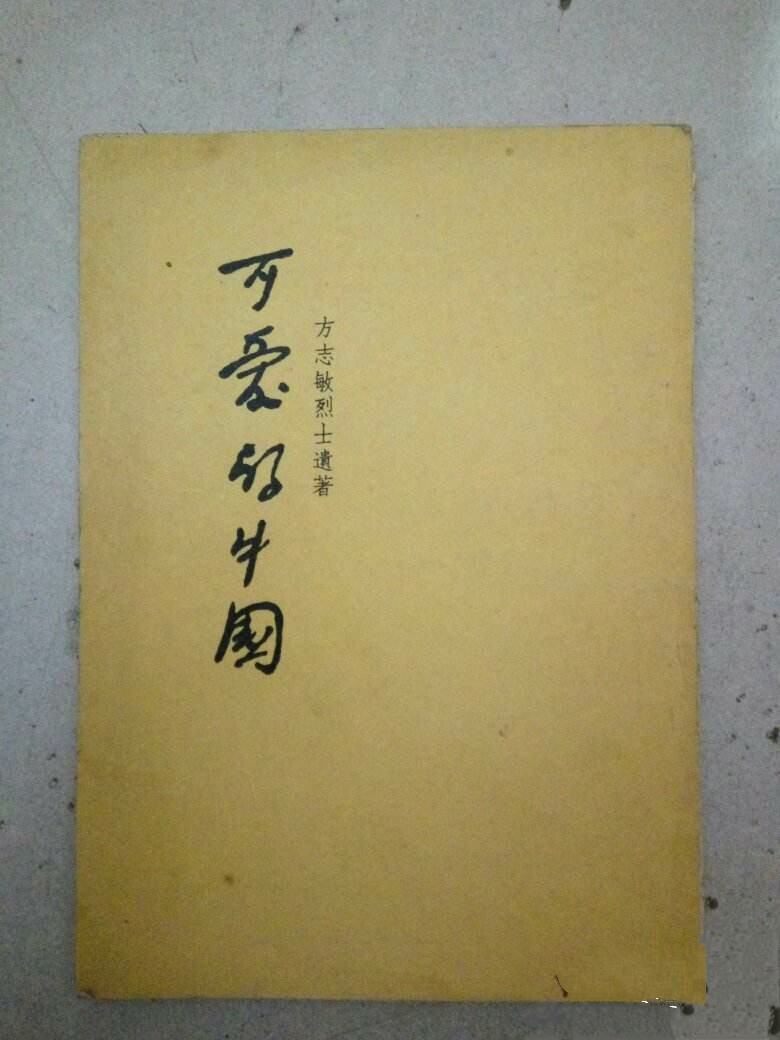 方志敏烈士遺著
可愛的中國